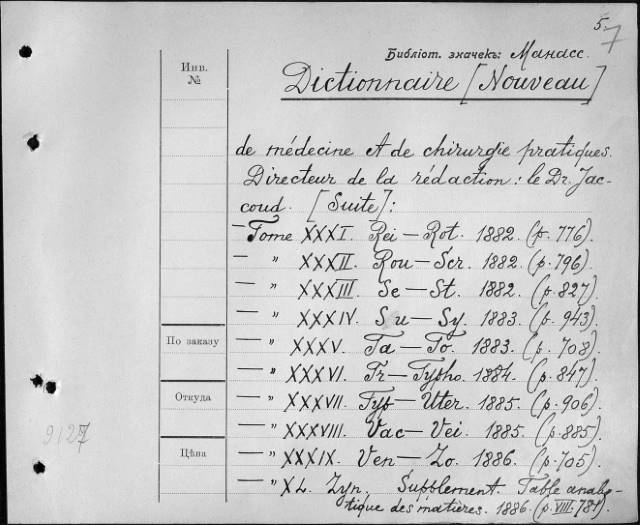 5.7
Библіот. значекъ: Манасс.
Инв.
№
Dictionnaire [Nouveau]
de médecine et de chirurgie pratiques.
Directeur de la rédaction: le Dr. Jac-
coud. [Suite]:
— Tome XXXI. Rei — Rot. 1882. (p. 776).
— " XXXII. Rou — Scr. 1882. (p. 796).
— " XXXIII. Se — St. 1882. (p. 827).
— " XXXIV. Su — Sy. 1883. (p. 943).
По заказу
— " XXXV. Ta — To. 1883. (p. 708).
— " XXXVI. Tr — Typho. 1884. (p. 847).
Откуда
— " XXXVII. Typ — Uter. 1885. (p. 906).
— " XXXVIII. Vac — Vei. 1885. (p. 885).
9127
Цѣна
— " XXXIX. Ven — Zo. 1886. (p. 705).
— " XL. Zyn. Supplement. Table analy-
tique des matières. 1886. (p. VIII. 781).